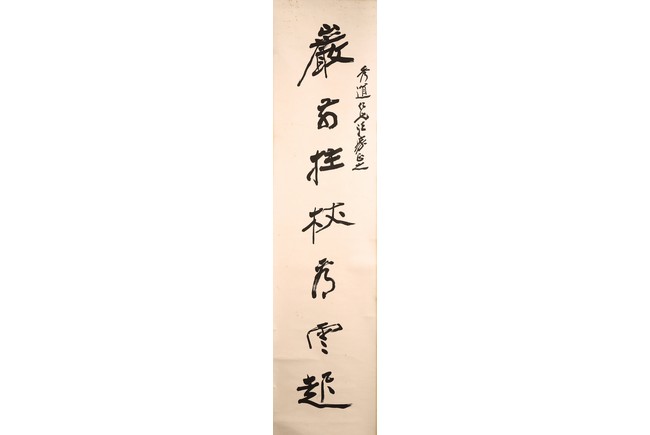 秀道仁兄法家正之
巖前拄杖看雲起